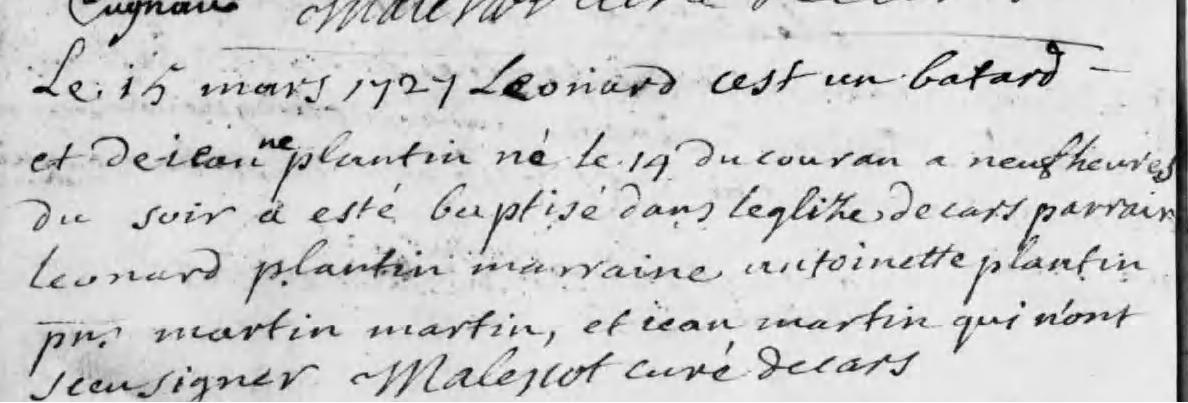 Cugnaux Malepot curé decars
Le 15 mars 1727 Leonard cest un batard
et de iean ne plantin né le 14 du couran a neuf heures
du soir a esté baptisé dans leglize decars parrain
leonard plantin marraine antoinette plantin
pns martin martin, et iean martin qui n'ont
sceu signer Malepot curé decars